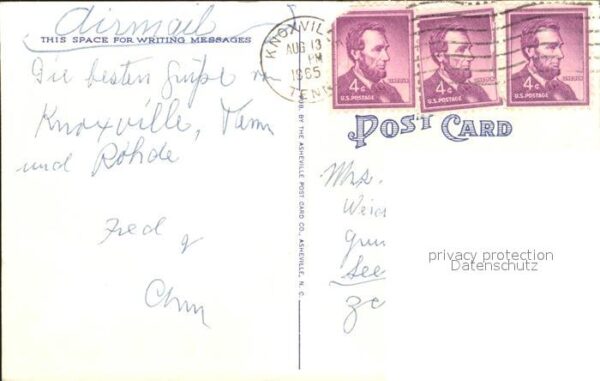 Airmail
THIS SPACE FOR WRITING MESSAGES
Die besten Grüße
Knoxville, Tenn
und Rohde
Fred &
KNOXVILLE
AUG 13
PM
1965
TENN
4c
U.S. POSTAGE
4c
U.S. POSTAGE
4c
U.S. POSTAGE
PUB. BY THE ASHEVILLE POST CARD CO., ASHEVILLE, N. C.
POST CARD
Mrs.
See
privacy protection
Datenschutz